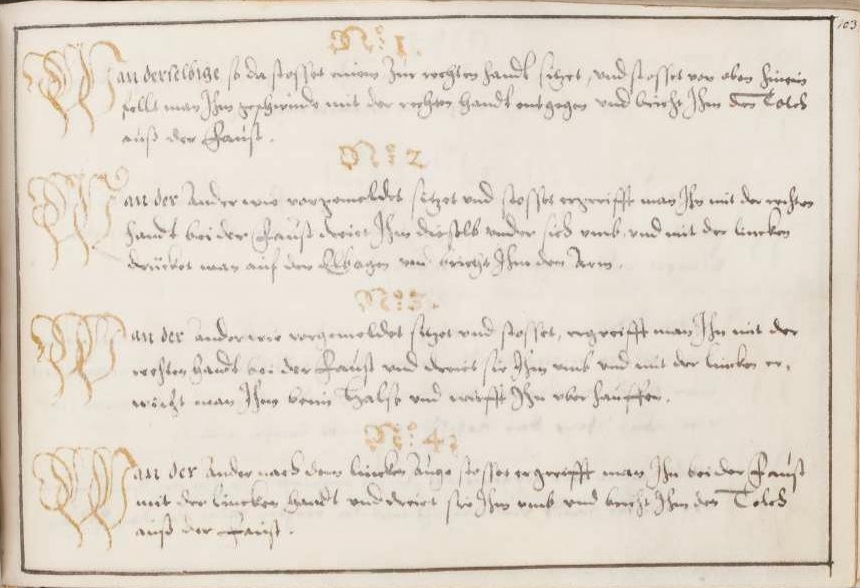 103
No: 1.
Wan derselbige so da stosset einem zur rechten handt sitzet, und stosset von oben hinein
fellt man Ihm geschwinde mit der rechten handt entgegen und bricht Ihm den Tolch
auß der Faust.
No: 2
Wan der Ander wie vorgemeldet sitzet und stosset ergreifft man Ihn mit der rechten
handt bei der Faust dreiet Ihm dieselb under sich umb, und mit der lincken
drücket man auf den Elbogen und bricht Ihm den Arm.
No: 3.
Wan der ander wie vorgemeldet sitzet und stosset, ergreifft man Ihn mit der
rechten handt bei der Faust und dreiet sie Ihm umb und mit der lincken er,
wischt man Ihm beim Halse und wirfft Ihn uber hauffen.
No: 4:
Wan der Ander nach dem lincken Auge stosset ergreifft man Ihn bei der Faust
mit der lincken handt und dreiet sie Ihm umb und bricht Ihm den Tolch
auß der Faust.